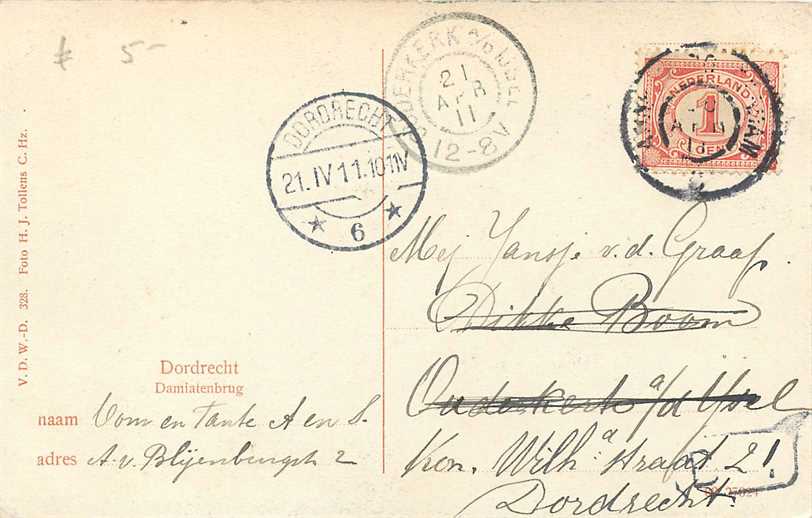 5-
OUDERKERK a/d IJSEL
21
APR
11
12-8V
DORDRECHT
21.IV 11.10-11V
6
NEDERLAND
1
CENT
Mej Jansje v.d. Graaf
Dikke Boom
Ouderkerk a/d IJsel
Kon. Wilh.a straat 21
Dordrecht.
V. D. W.-D. 328. Foto H. J. Tollens C. Hz.
Dordrecht
Damiatenbrug
naam Oom en Tante A en S.
adres A. v. Blijenburgstr 2